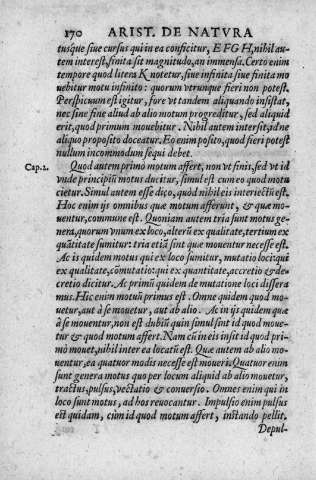 170 ARIST. DE NATVRA
tusque siue cursus qui in ea conficitur, E F G H, nihil au-
tem interest, finita sit magnitudo, an immensa. Certo enim
tempore quod litera K notetur, siue infinita siue finita mo
uebitur motu infinito: quorum vtrunque fieri non potest.
Perspicuum est igitur, fore vt tandem aliquando insistat,
nec sine fine aliud ab alio motum progreditur, sed aliquid
erit, quod primum mouebitur. Nihil autem intersit, id ne
aliquo proposito doceatur. Eo enim posito, quod fieri potest
nullum incommodum sequi debet.
Cap. 2. Quod autem primo motum affert, non vt finis, sed vt id
vnde principiũ motus ducitur, simul est cum eo quod motu
cietur. Simul autem esse dico, quòd nihil eis interiectũ est.
Hoc enim ijs omnibus quæ motum afferunt, & quæ mo-
uentur, commune est. Quoniam autem tria sunt motus ge-
nera, quorum vnum ex loco, alterũ ex qualitate, tertium ex
quãtitate sumitur: tria etiã sunt quæ mouentur necesse est.
Ac is quidem motus qui ex loco sumitur, mutatio loci: qui
ex qualitate, cõmutatio: qui ex quantitate, accretio & de-
cretio dicitur. Ac primũ quidem de mutatione loci dissera
mus. Hic enim motuũ primus est. Omne quidem quod mo-
uetur, aut à se mouetur, aut ab alio. Ac in ijs quidem quæ
à se mouentur, non est dubiũ quin simul sint id quod moue-
tur & quod motum affert. Nam cũ in eis insit id quod pri-
mò mouet, nihil inter ea locatũ est. Quæ autem ab alio mo-
uentur, ea quatuor modis necesse est moueri. Quatuor enim
sunt genera motus quo per locum aliquid ab alio mouetur,
tractus, pulsus, vectatio & conuersio. Omnes enim qui in
loco sunt motus, ad hos reuocantur. Impulsio enim pulsus
est quidam, cùm id quod motum affert, instando pellit.
Depul-